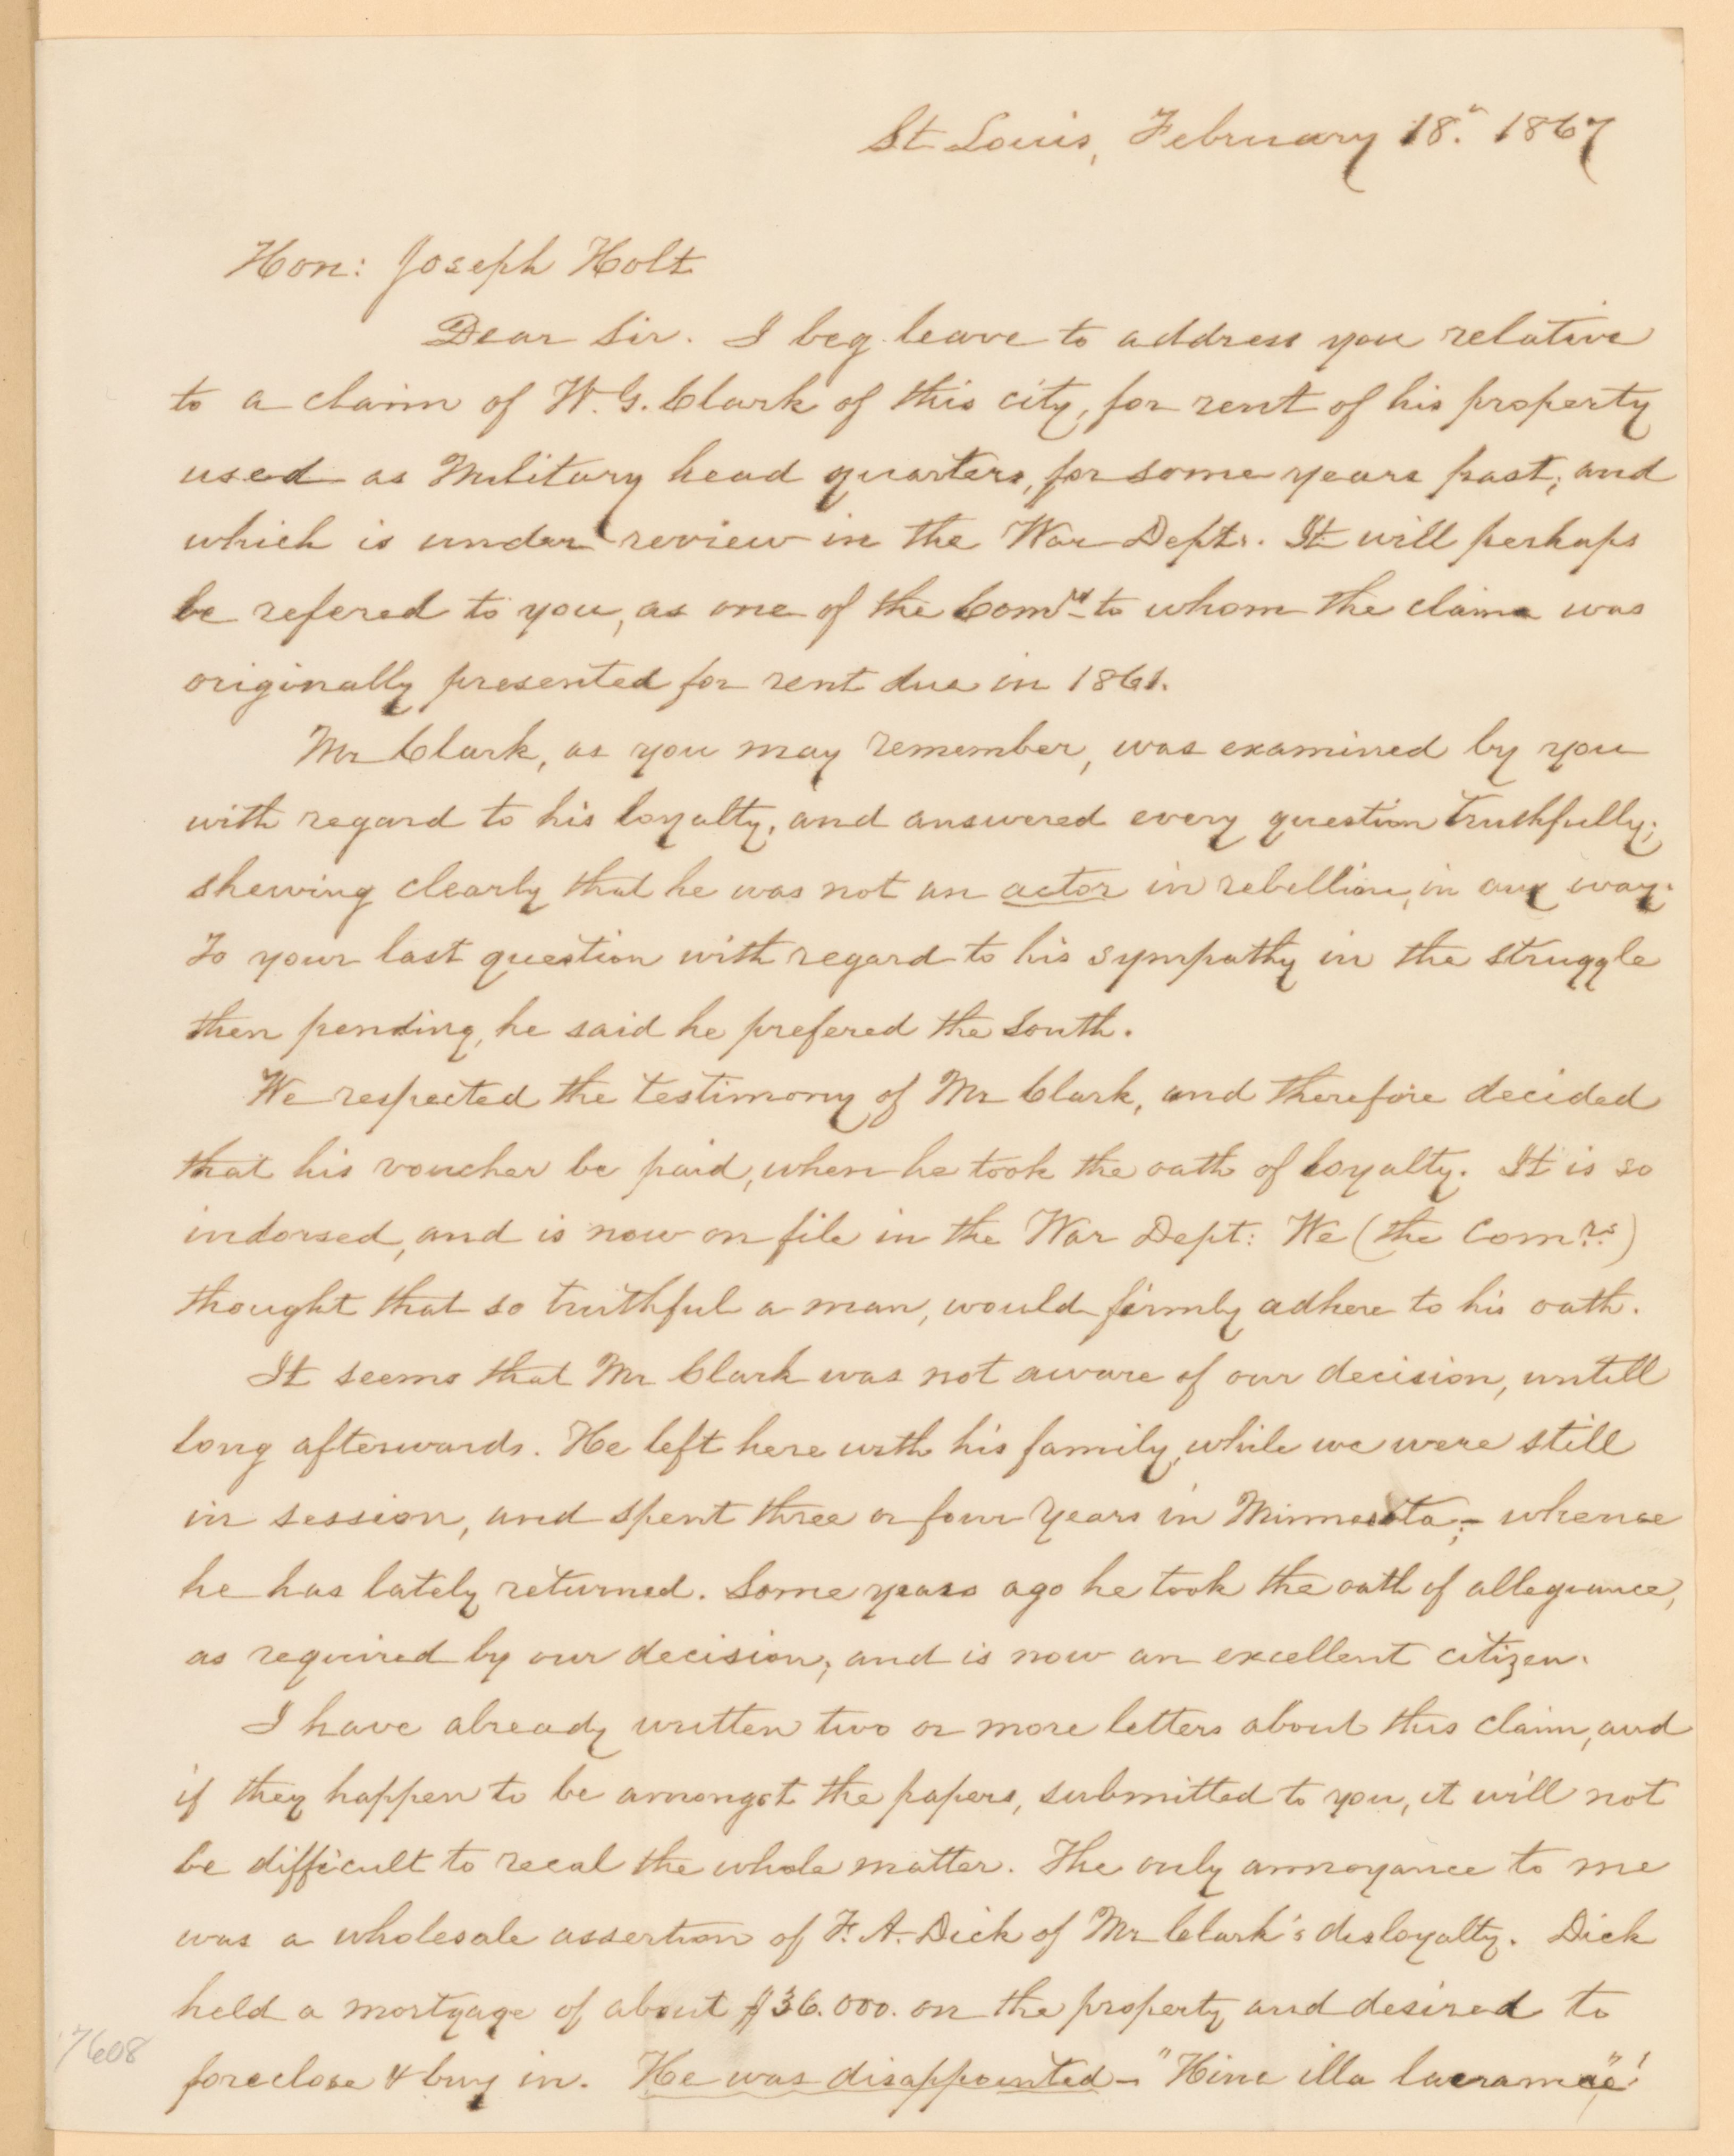 St Louis, February 18." 1867
Hon: Joseph Holt
Dear Sir. I beg leave to address you relative
to a claim of W. G. Clark of this city, for rent of his property
used as Military head quarters, for some years past; and
which is under review in the War Dept. It will perhaps
be refered to you, as one of the Comrs to whom the claim was
originally presented for rent due in 1861.
Mr Clark, as you may remember, was examined by you
with regard to his loyalty, and answered every question truthfully;
shewing clearly that he was not an actor in rebellion, in any way.
To your last question with regard to his sympathy in the struggle
then pending, he said he prefered the South.
We respected the testimony of Mr Clark, and therefore decided
that his voucher be paid, when he took the oath of loyalty. It is so
indorsed, and is now on file in the War Dept: We (the Comrs)
thought that so truthful a man, would firmly adhere to his oath.
It seems that Mr Clark was not aware of our decision, untill
long afterwards. He left here with his family, while we were still
in session, and spent three or four years in Minnesota; - whence
he has lately returned. Some years ago he took the oath of allegiance,
as required by our decision; and is now an excellent citizen.
I have already written two or more letters about this claim, and
if they happen to be amongst the papers, submitted to you, it will not
be difficult to recal the whole matter. The only annoyance to me
was a wholesale assertion of F. A. Dick of Mr Clark's disloyalty. Dick
held a mortgage of about $36.000. on the property and desired to
foreclose & buy in. He was disappointed - "Hinc illa lacramae"!
7608